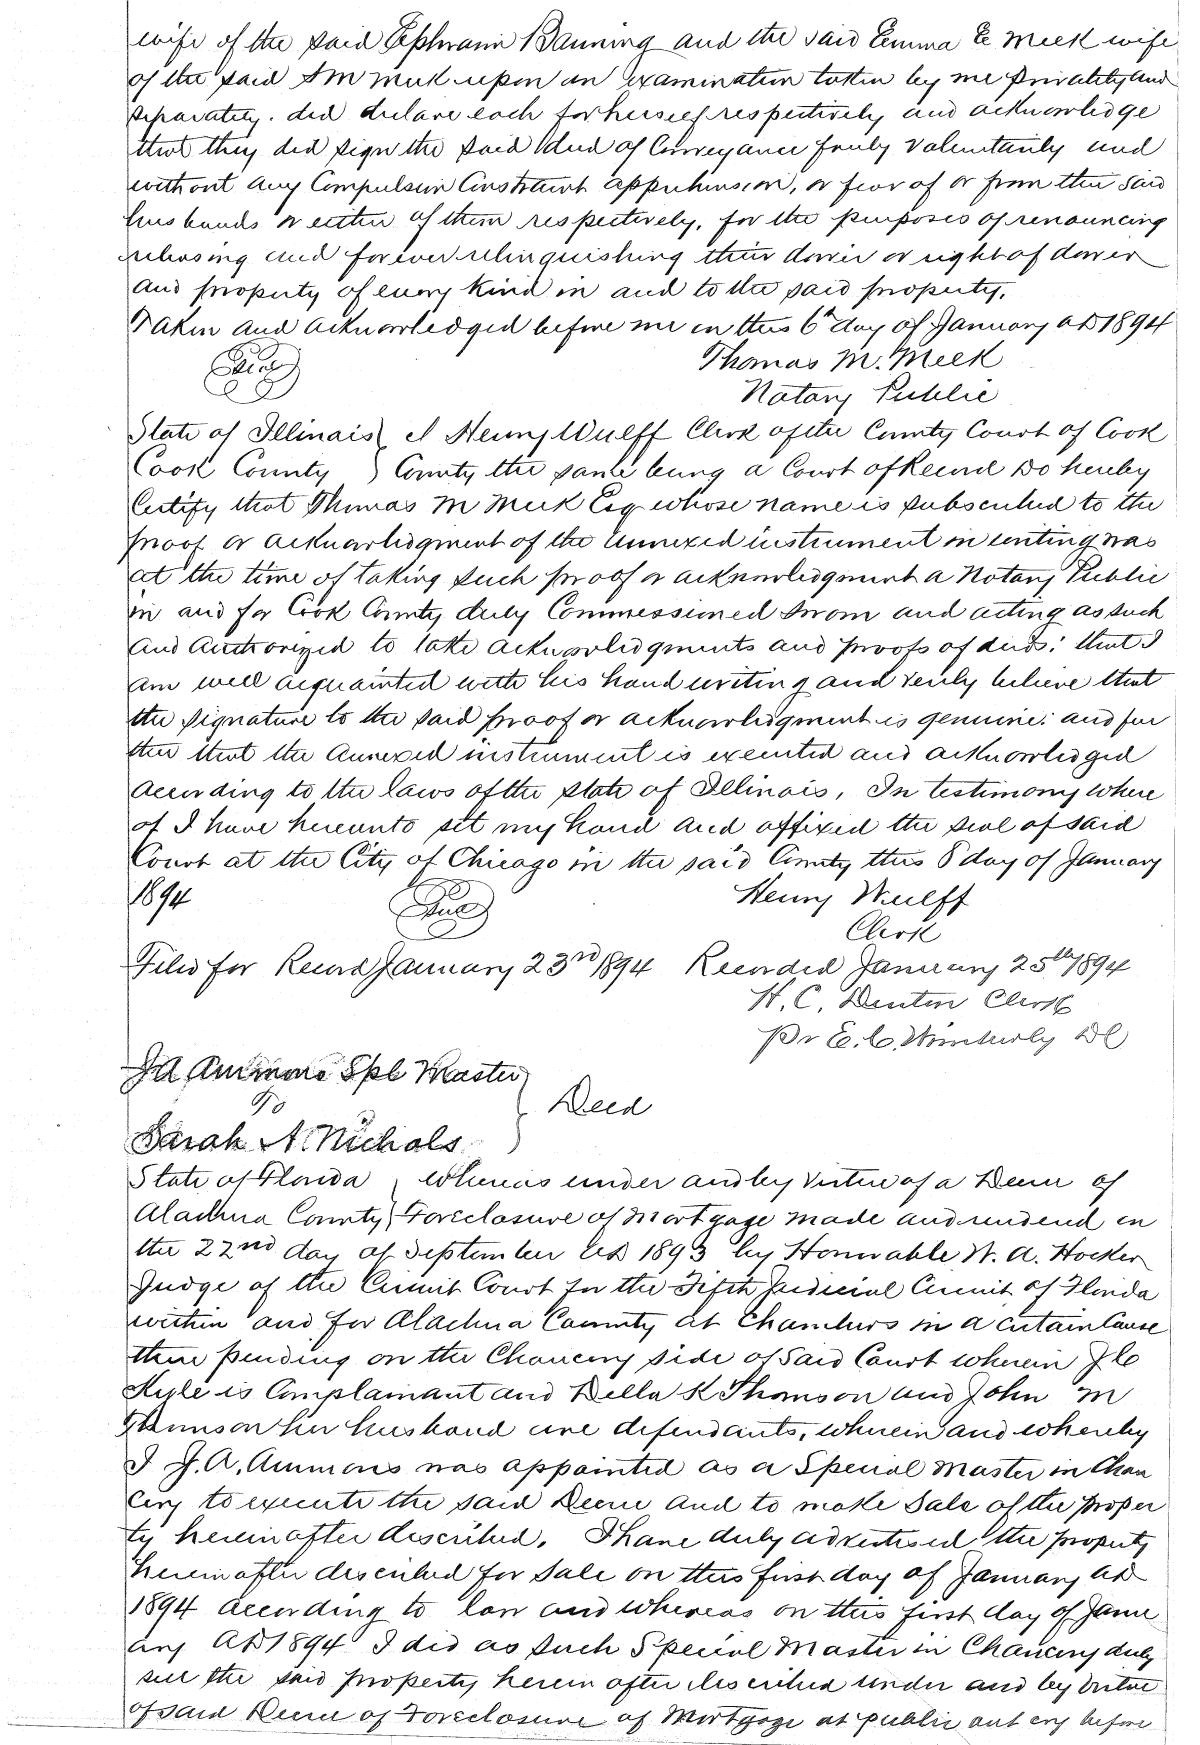 wife of the said Ephraim Banning and the said Emma E Meek wife
of the said T M Meek upon an examination taken by me privately and
separately. did declare each for herself respectively and acknowledge
that they did sign the said Deed of Conveyance freely voluntarily and
without any Compulsion Constraint apprehension, or fear of or from their said
husbands or either of them respectively, for the purposes of renouncing
releasing and forever relinquishing their dower or right of dower
and property of every kind in and to the said property.
Taken and acknowledged before me on this 6th day of January AD 1894
Seal Thomas M. Meek
Notary Public
State of Illinois } I Henry Wulff Clerk of the County Court of Cook
Cook County } County the same being a Court of Record Do hereby
Certify that Thomas M Meek Esq whose name is subscribed to the
proof or acknowledgment of the annexed instrument in writing was
at the time of taking such proof or acknowledgment a Notary Public
in and for Cook County duly Commissioned sworn and acting as such
and authorized to take acknowledgments and proofs of deeds: that I
am well acquainted with his hand writing and verily believe that
the signature to the said proof or acknowledgment is genuine: and fur
ther that the annexed instrument is executed and acknowledged
according to the laws of the state of Illinois. In testimony where
of I have hereunto set my hand and affixed the seal of said
Court at the City of Chicago in the said County this 8 day of January
1894 Seal Henry Wulff
Clerk
Filed for Record January 23rd 1894 Recorded January 25th 1894
H. C. Denton Clerk
Pr E. C. Wimberly DC
J A Ammons Spl Master
To } Deed
Sarah A. Nichols
State of Florida } Whereas under and by virtue of a Decree of
Alachua County } Foreclosure of Mortgage made and rendered on
the 22nd day of September AD 1893 by Honorable W. A. Hocker
Judge of the Circuit Court for the Fifth Judicial Circuit of Florida
within and for Alachua County at Chambers in a certain Cause
there pending on the Chancery side of said Court wherein J C
Kyle is Complainant and Della K Thomson and John M
Thomson her husband are defendants, wherein and whereby
I J. A. Ammons was appointed as a Special Master in Chan
cery to execute the said Decree and to make sale of the proper
ty herein after described. I have duly advertised the property
herein after described for sale on this first day of January AD
1894 according to law and whereas on this first day of Janu
ary AD 1894 I did as such Special Master in Chancery duly
sell the said property herein after described under and by virtue
of said Decree of Foreclosure of Mortgage at public out cry before